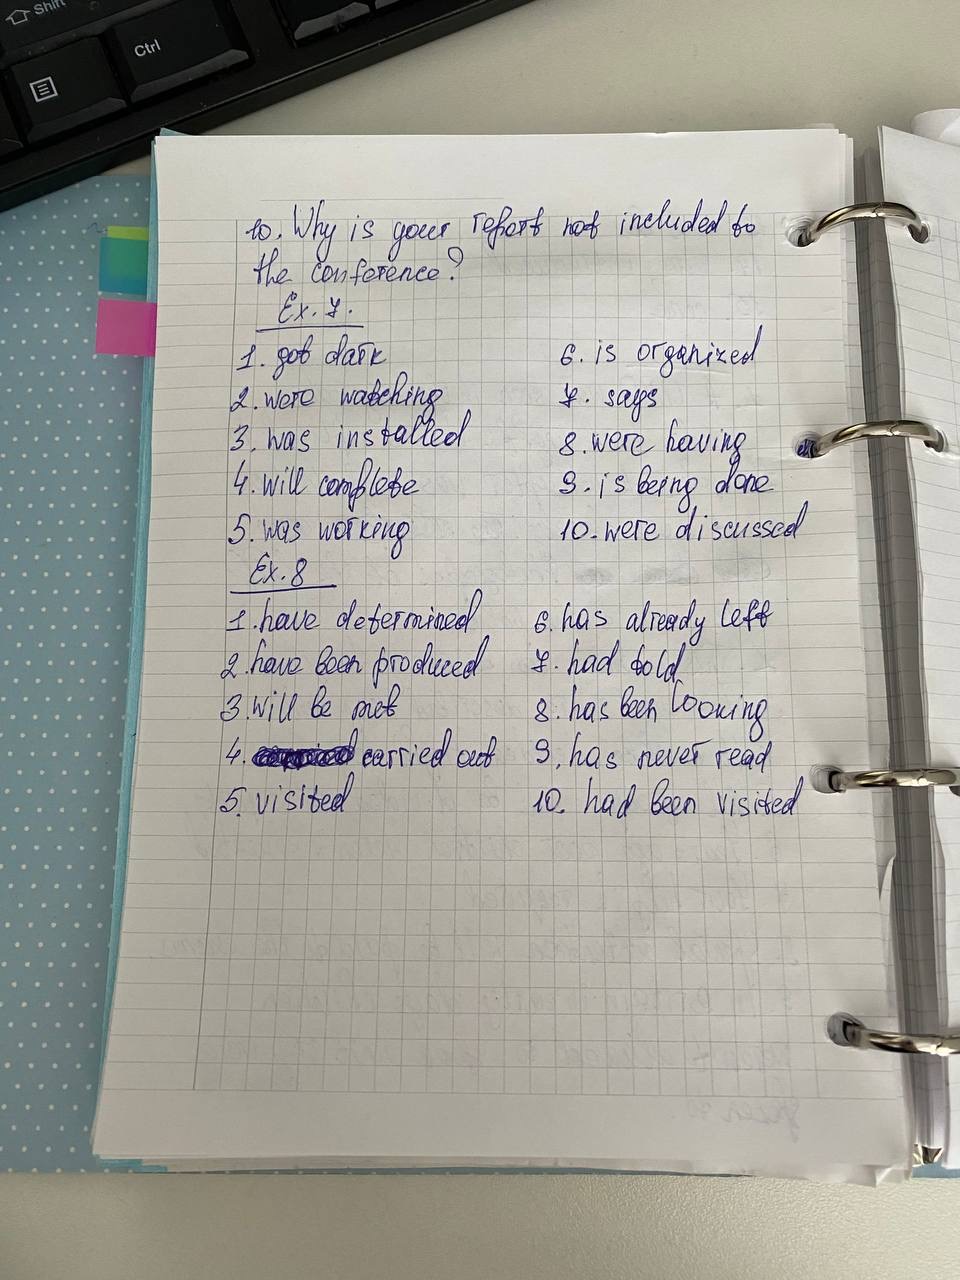 Shift
Ctrl
10. Why is your report not included to
the conference?
Ex. 7.
1. got dark
2. were watching
3. was installed
4. will complete
5. was working
6. is organized
7. says
8. were having
9. is being done
10. were discussed
Ex. 8
1. have determined
2. have been produced
3. will be met
4. carried out
5. visited
6. has already left
7. had told
8. has been looking
9. has never read
10. had been visited